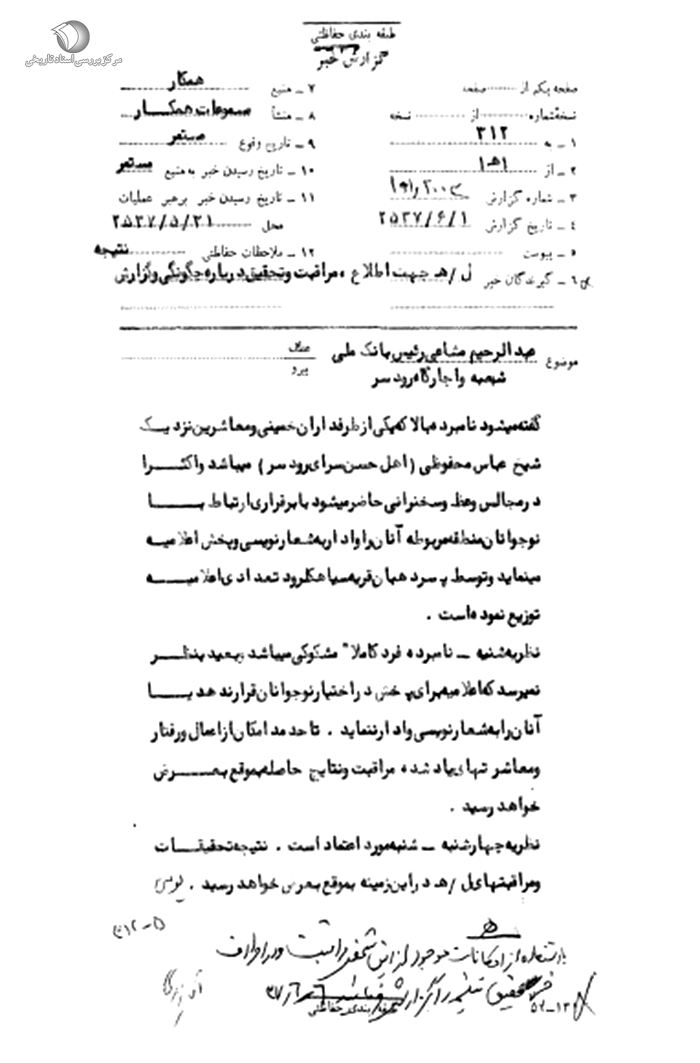 مرکز بررسی اسناد تاریخی
طبقه بندی حفاظتی
گزارش خبر
صفحه یکم از صفحه
نسخهٔ شماره از نسخه
۱ - به ۳۱۲
۲ - از ۱ﻫ۱
۳ - شماره گزارش
۴ - تاریخ گزارش ۲۵۳۷/۶/۱
۵ - پیوست
۶ - گیرندگان خبر ل / هـ جهت اطلاع ، مراقبت و تحقیق درباره چگونگی و گزارش
۷ - منبع همکار
۸ - منشأ مسموعات همکار
۹ - تاریخ وقوع مستمر
۱۰ - تاریخ رسیدن خبر به منبع مستمر
۱۱ - تاریخ رسیدن خبر برهبر عملیات
محل ۲۵۳۷/۵/۳۱
۱۲ - ملاحظات حفاظتی نتیجه
موضوع عبدالرحیم مشاعی رئیس بانک ملی
شعبه واجارگاه رودسر
عطف
پیرو
گفته میشود نامبرده بالا که یکی از طرفداران خمینی و معاشرین نزدیک
شیخ عباس محفوظی ( اهل حسن سرای رودسر ) میباشد و اکثرا
در مجالس وعظ و سخنرانی حاضر میشود با برقراری ارتباط با
نوجوانان منطقه مربوطه آنان را وادار به شعارنویسی و پخش اعلامیه
مینماید و توسط پسرد همان قریه سیاهکلرود تعدادی اعلامیه
توزیع نموده است .
نظریه شنبه - نامبرده فرد کاملا" مشکوکی میباشد و بعید بنظر
نمیرسد که اعلامیه برای پخش در اختیار نوجوانان قرار ندهد یا
آنان را به شعارنویسی وادار ننماید . تا حد مد امکان از اعمال و رفتار
و معاشرتهای یاد شده مراقبت و نتایج حاصله بموقع بعرض
خواهد رسید .
نظریه چهارشنبه - شنبه مورد اعتماد است . نتیجه تحقیقات
و مراقبتهای ل / هـ در این زمینه بموقع بعرض خواهد رسید .
هـ
با استفاده از امکانات موجود از این شخص مراقبت و در اطراف
تحقیق نتیجه را گزارش
طبقه بندی حفاظتی